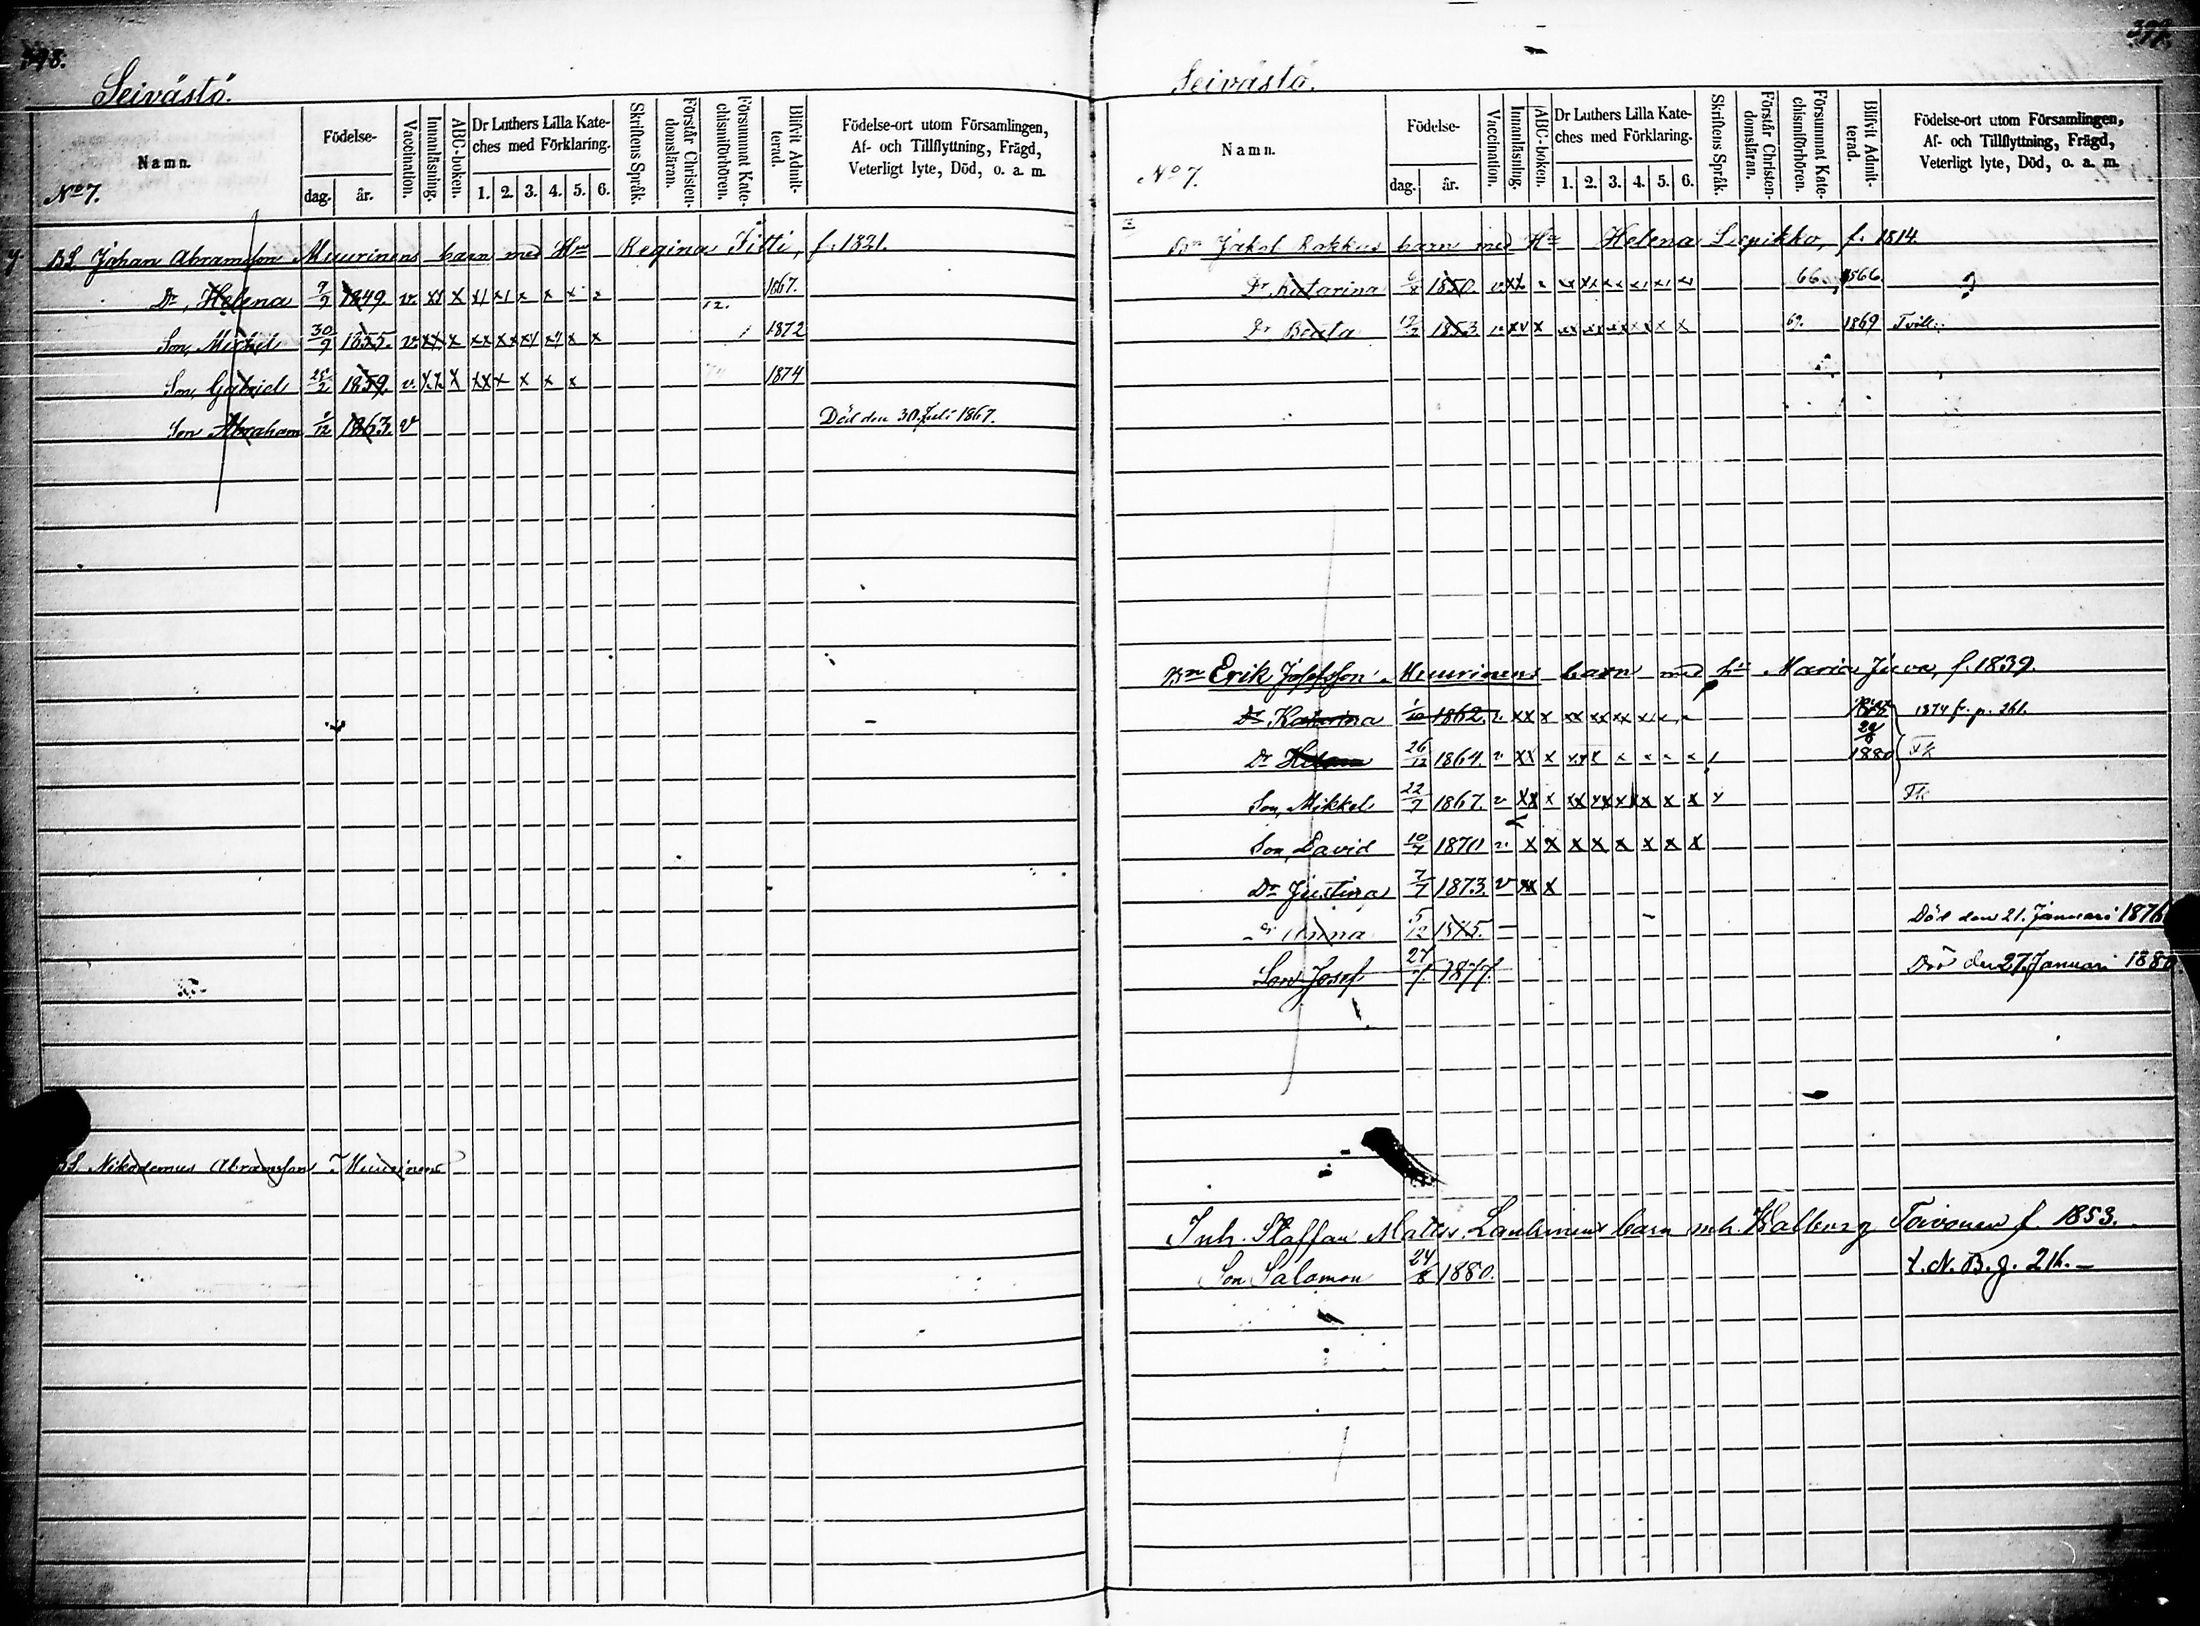 Seivästö.
Namn.
Födelse-
dag. år.
Vaccination.
Innanläsning.
ABC-boken.
Dr Luthers Lilla Kate-
ches med Förklaring.
1. 2. 3. 4. 5. 6.
Skriftens Språk.
Förstår Christen-
domsläran.
Försummat Kate-
chismiförhören.
Blifvit Admit-
terad.
Födelse-ort utom Församlingen,
Af- och Tillflyttning, Frägd,
Veterligt lyte, Död, o. a. m.
No 7.
BS. Johan Abramsson Muurinens barn med Hu Regina Titti, f. 1821.
Dr, Helena 7/9 1849. v. xx x x x x x x 12. 1867.
Son, Mickel 30/9 1855. v. xx x xx xx x x x x 1872
Son, Gabriel 25/2 1859. v. xx x xx x x x x 1874
Son Abraham 1/12 1863. v Död den 30 Juli 1867.
BS. Nikodemus Abramsson Muurinens
Seivästö.
Namn.
Födelse-
dag. år.
Vaccination.
Innanläsning.
ABC-boken.
Dr Luthers Lilla Kate-
ches med Förklaring.
1. 2. 3. 4. 5. 6.
Skriftens Språk.
Förstår Christen-
domsläran.
Försummat Kate-
chismiförhören.
Blifvit Admit-
terad.
Födelse-ort utom Församlingen,
Af- och Tillflyttning, Frägd,
Veterligt lyte, Död, o. a. m.
No 7.
Bn Jakob Kokkos barn med Hu Helena Lepikko, f. 1814.
Dr Katarina 1850. 66. 1866.
Dr Beata 1853. 69. 1869
Bn Erik Josefsson Muurinens barn med Maria Juva, f. 1839.
Dr Katarina 1/10 1862. v. xx x xx xx xx x x 1874 f. p. 261.
Dr Helena 26/12 1864. v xx x 1880 Fk
Son, Mikkel 22/7 1867. v xx x xx xx x x x x Fk
Son, David 10/7 1870 v. x x x x x x x x
Dr Justina 7/7 1873. v xx x
Anna 5/12 1875. Död den 21. Januari 1876
Son Josef 27/7 1877. Död den 27. Januari 1880
Inh. Staffan Matss. Laulainens barn m h. Walborg Toivonen f. 1853.
Son Salomon 24/8 1880. t. N. B. g. 216.